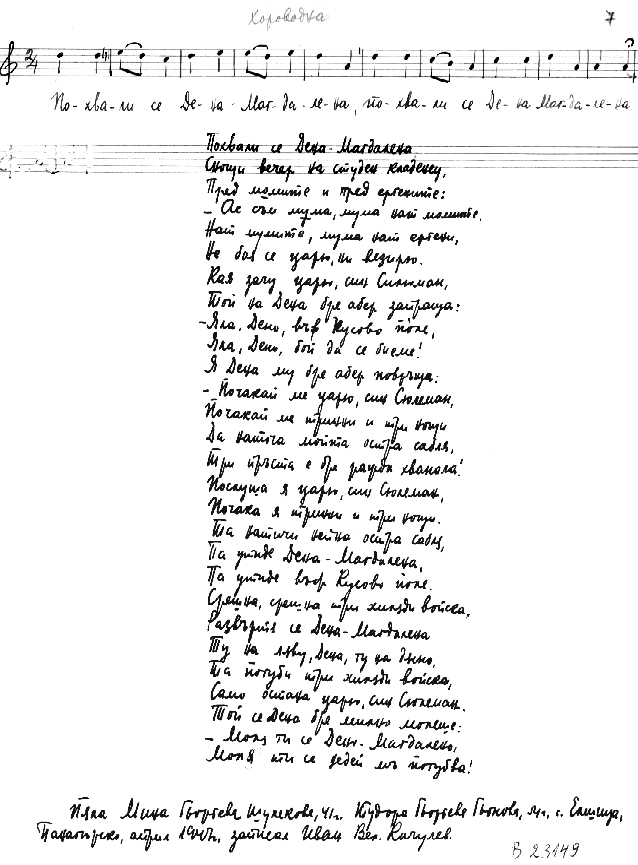 Хороводна
7
По-хва-ли се Де-на-Маг-да-ле-на, по-хва-ли се Де-на Маг-да-ле-на
Похвали се Дена-Магдалена
Снощи вечер на студен кладенец,
Пред момите и пред ергените:
– Ас съм мума, мума нат момите,
Нат мумите, мума нат ергени,
Не боя се царю, ни везирю.
Кая зачу царю, син Сюлюман,
Той на Дена бре абер запраща:
– Яла, Дено, въф Кусово поле,
Яла, Дено, бой да се бием!
Я Дена му бре абер повръща:
– Почакай ме царю, син Сюлеман,
Почакай ме три дни и три нощи
Да наточа мойта остра сабля,
Три пръста е бре ръжда хванала!
Послуша я царю, син Сюлеман,
Почака я три дни и три нощи.
Та наточи нейна остра сабля,
Па утиде Дена-Магдалена,
Па утиде въф Кусово поле.
Срешна, срешна три хиляди войска,
Развъртя се Дена-Магдалена
Ту на ляву, Дена, ту на дясно,
Та погуби три хиляди войска,
Само остана царю, син Сюлеман.
Той се Дена бре милно молеше:
– Моля ти се Дено-Магдалено,
Моля ти се недей ма погубва!
Пяла Мина Георгева Шулекова, 41 г. Тудора Георгева Гьонова, г. с. Елшица,
Панагюрско, април 19 г., записал Иван Вел. Качулев.
В 23149